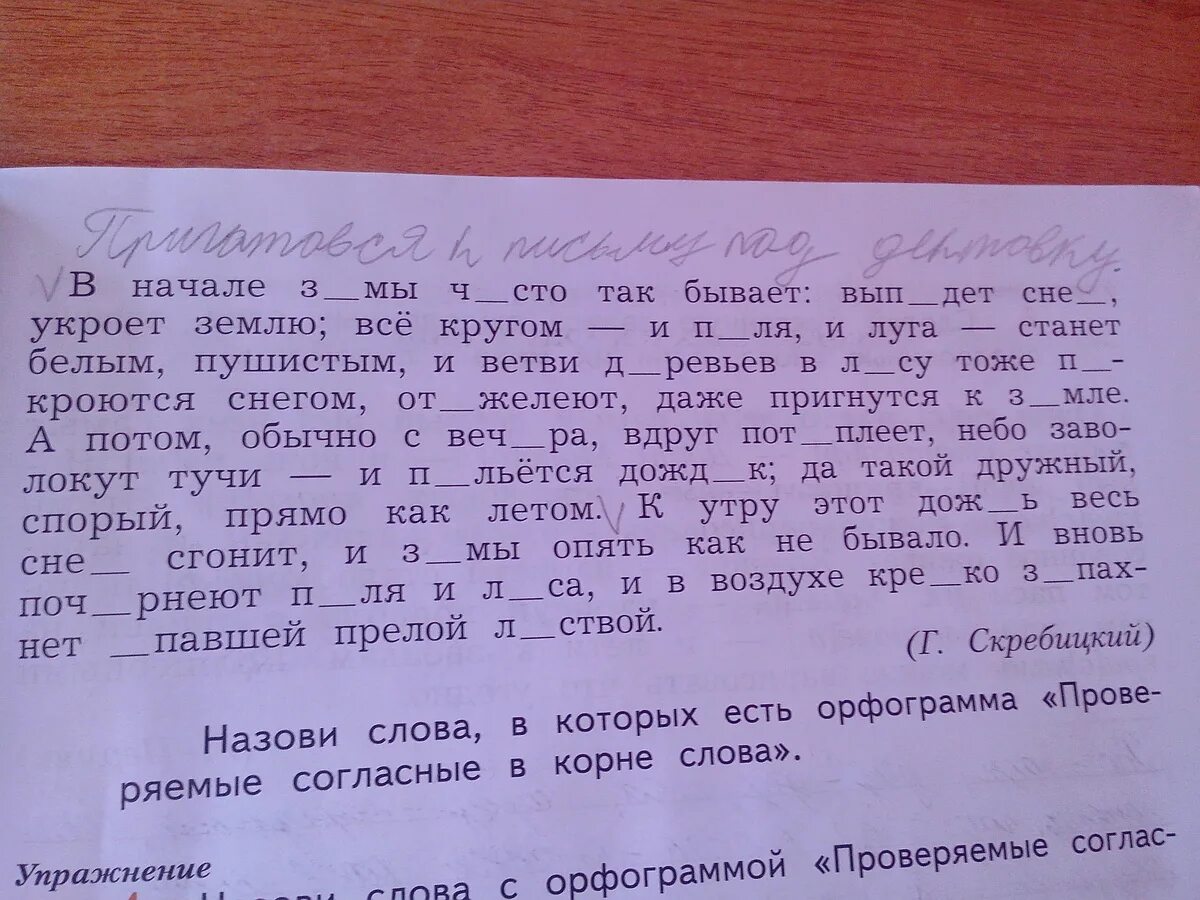 Приготовся к письму под диктовку.
√ В начале з__мы ч__сто так бывает: вып__дет сне__,
укроет землю; всё кругом — и п__ля, и луга — станет
белым, пушистым, и ветви д__ревьев в л__су тоже п__-
кроются снегом, от__желеют, даже пригнутся к з__мле.
А потом, обычно с веч__ра, вдруг пот__плеет, небо заво-
локут тучи — и п__льётся дожд__к; да такой дружный,
спорый, прямо как летом. √ К утру этот дож__ь весь
сне__ сгонит, и з__мы опять как не бывало. И вновь
поч__рнеют п__ля и л__са, и в воздухе кре__ко з__пах-
нет __павшей прелой л__ствой.
(Г. Скребицкий)
Назови слова, в которых есть орфограмма «Прове-
ряемые согласные в корне слова».
Упражнение
слова с орфограммой «Проверяемые соглас-